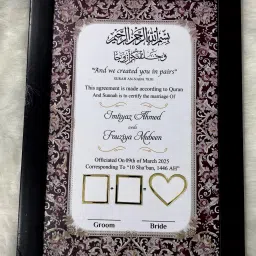 بسم الله الرحمن الرحيم
وخلقناكم أزواجا
"And we created you in pairs"
This agreement is made according to Quran
And Sunnah is to certify the marriage Of
Imtiyaz Ahmed
with
Fouziya Mubeen
Officiated On 09th of March 2025
Corresponding To "10 Sha'ban, 1446 AH"
Groom
Bride